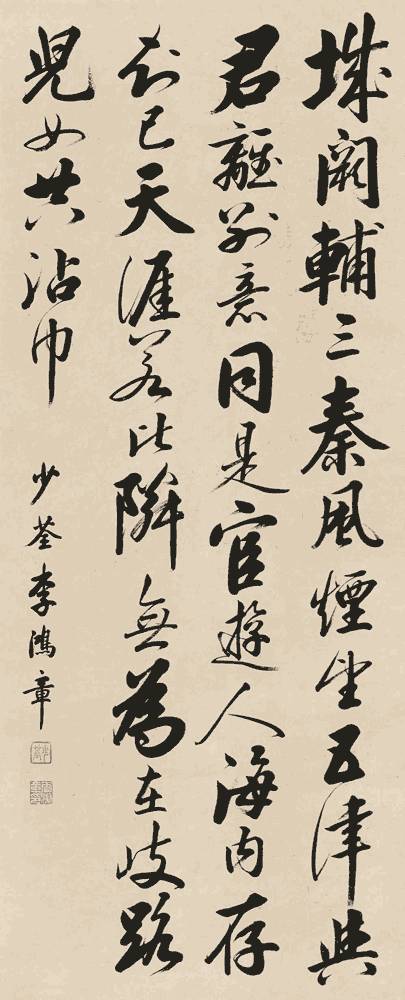 城闕輔三秦風煙望五津與
君離別意同是宦遊人海內存
知己天涯若比隣無為在歧路
兒女共沾巾
少荃李鴻章